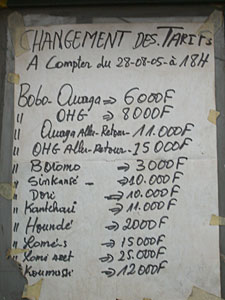 CHANGEMENT DES TARIFS
A Compter du 28-08-05 à 18H
Bobo-Ouaga => 6000F
" OHG => 8000F
" Ouaga Aller-Retour - 11.000F
" OHG Aller-Retour - 15000F
" Boromo => 3000F
" Sinkansé - 10.000F
" Dori => 10.000F
" Kantchari => 11.000F
" Houndé => 2000F
" Lomé-s => 15000F
" Lomé => 25.000F
" Koumassi => 12000F